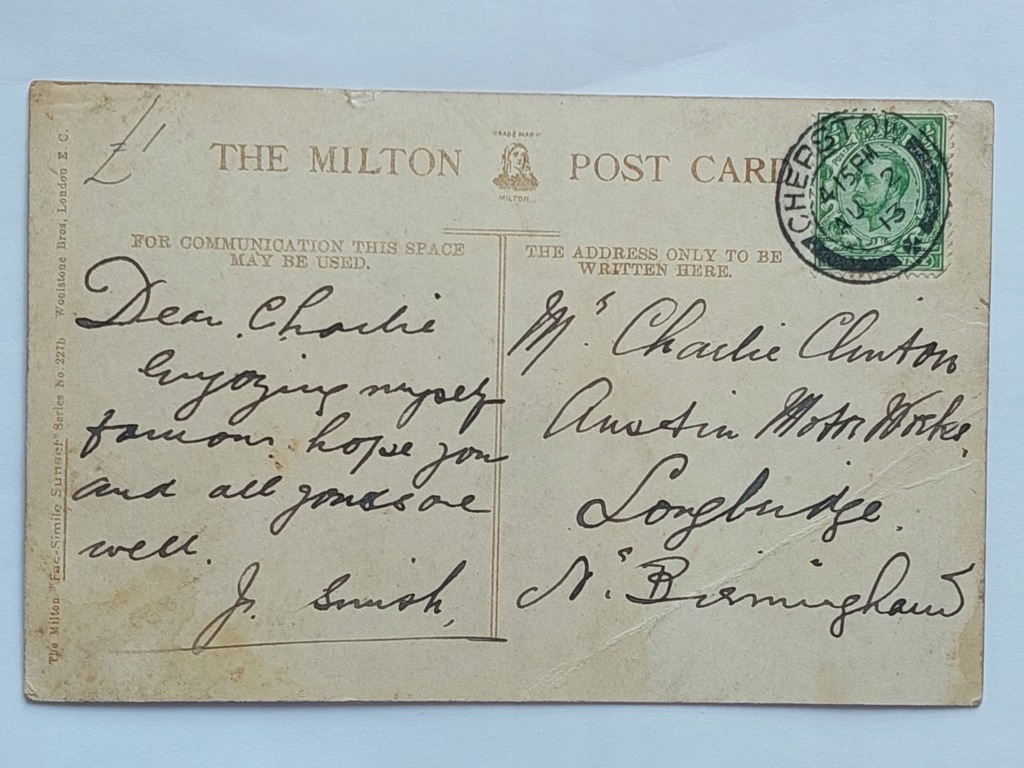 £1
THE MILTON POST CARD
TRADE MARK
MILTON
FOR COMMUNICATION THIS SPACE
MAY BE USED.
THE ADDRESS ONLY TO BE
WRITTEN HERE.
CHEPSTOW
15PM
AU 2
13
Dear Charlie
Enjoying myself
famous. hope you
and all yours are
well.
J. Smith,
Mr. Charlie Clinton
Austin Motor Works,
Longbridge.
Nr. Birmingham
The Milton "Fac-Simile Sunset" Series No. 227b Woolstone Bros, London E. C.